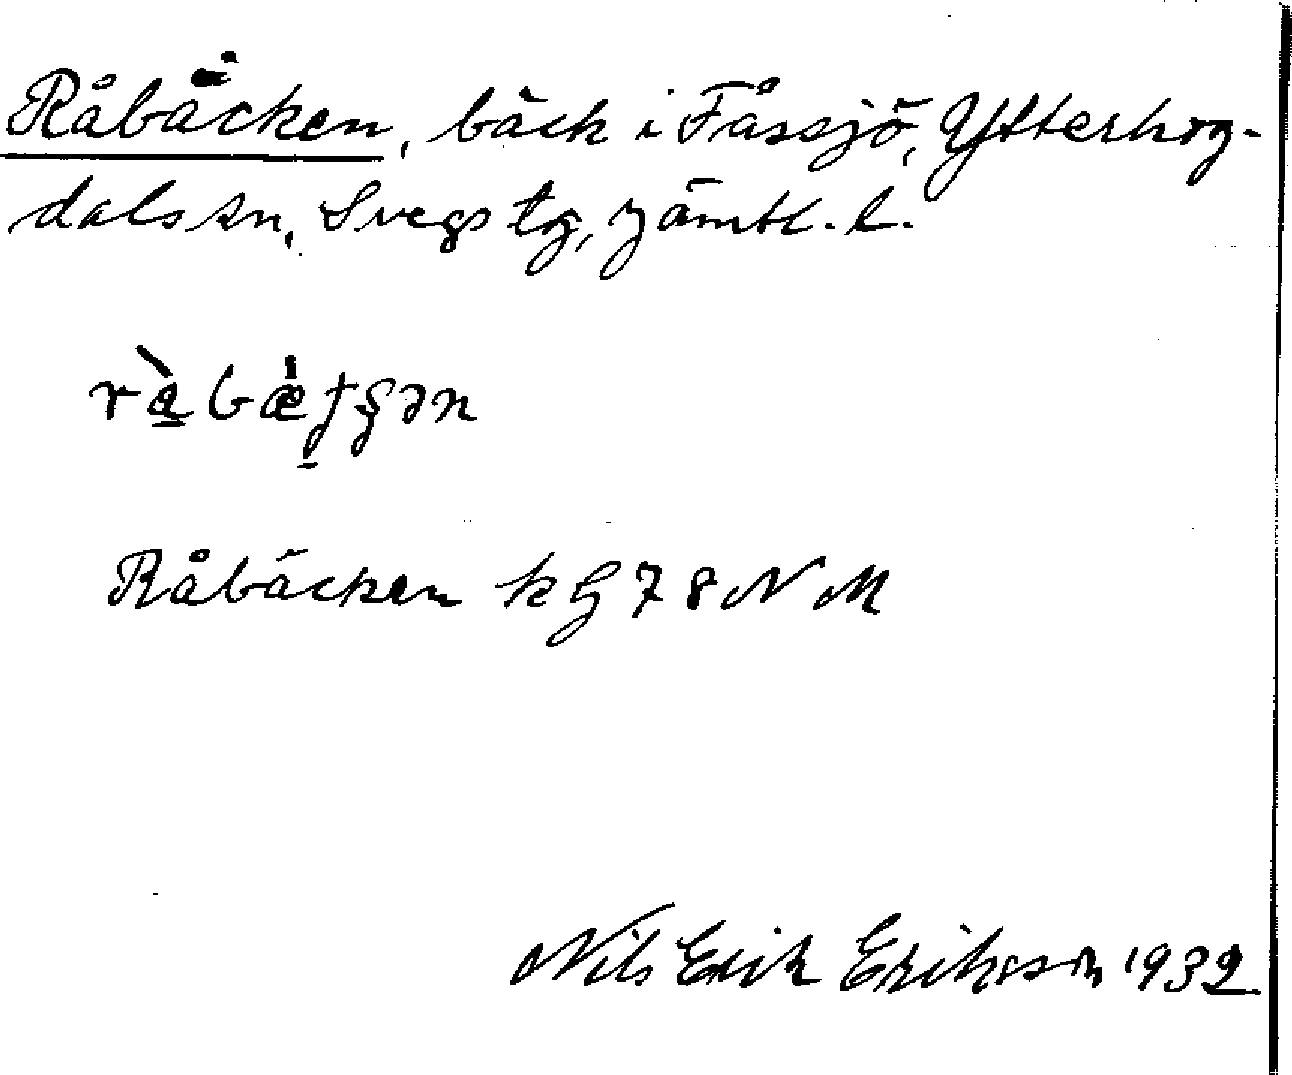 Råbäcken, bäck i Fåssjö, Ytterhog-
dals sn, Svegs tg, Jämtl. l.
Råbäcken kG 78 NM
Nils Erik Eriksson 1932